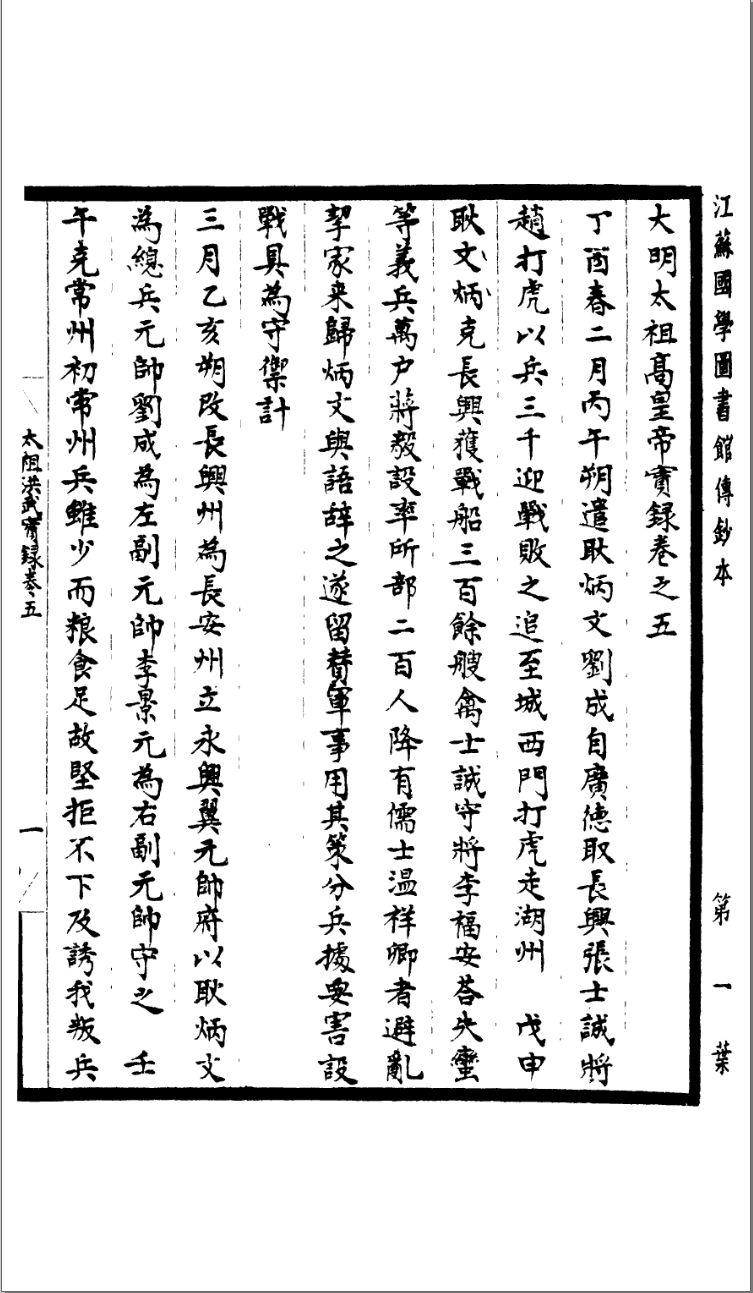 江蘇國學圖書館傳鈔本 第一葉
大明太祖高皇帝實録卷之五
丁酉春二月丙午朔遣耿炳文劉成自廣德取長興張士誠將
趙打虎以兵三千迎戰敗之追至城西門打虎走湖州 戊申
耿文炳克長興獲戰船三百餘艘禽士誠守將李福安荅失蠻
等義兵萬户蔣毅設率所部二百人降有儒士温祥卿者避亂
挈家来歸炳文與語辞之遂留賛軍事用其策分兵據要害設
戰具為守禦計
三月乙亥朔改長興州為長安州立永興翼元帥府以耿炳文
為總兵元帥劉成為左副元帥李景元為右副元帥守之 壬
午克常州初常州兵雖少而粮食足故堅拒不下及誘我叛兵
太祖洪武實録卷五 一